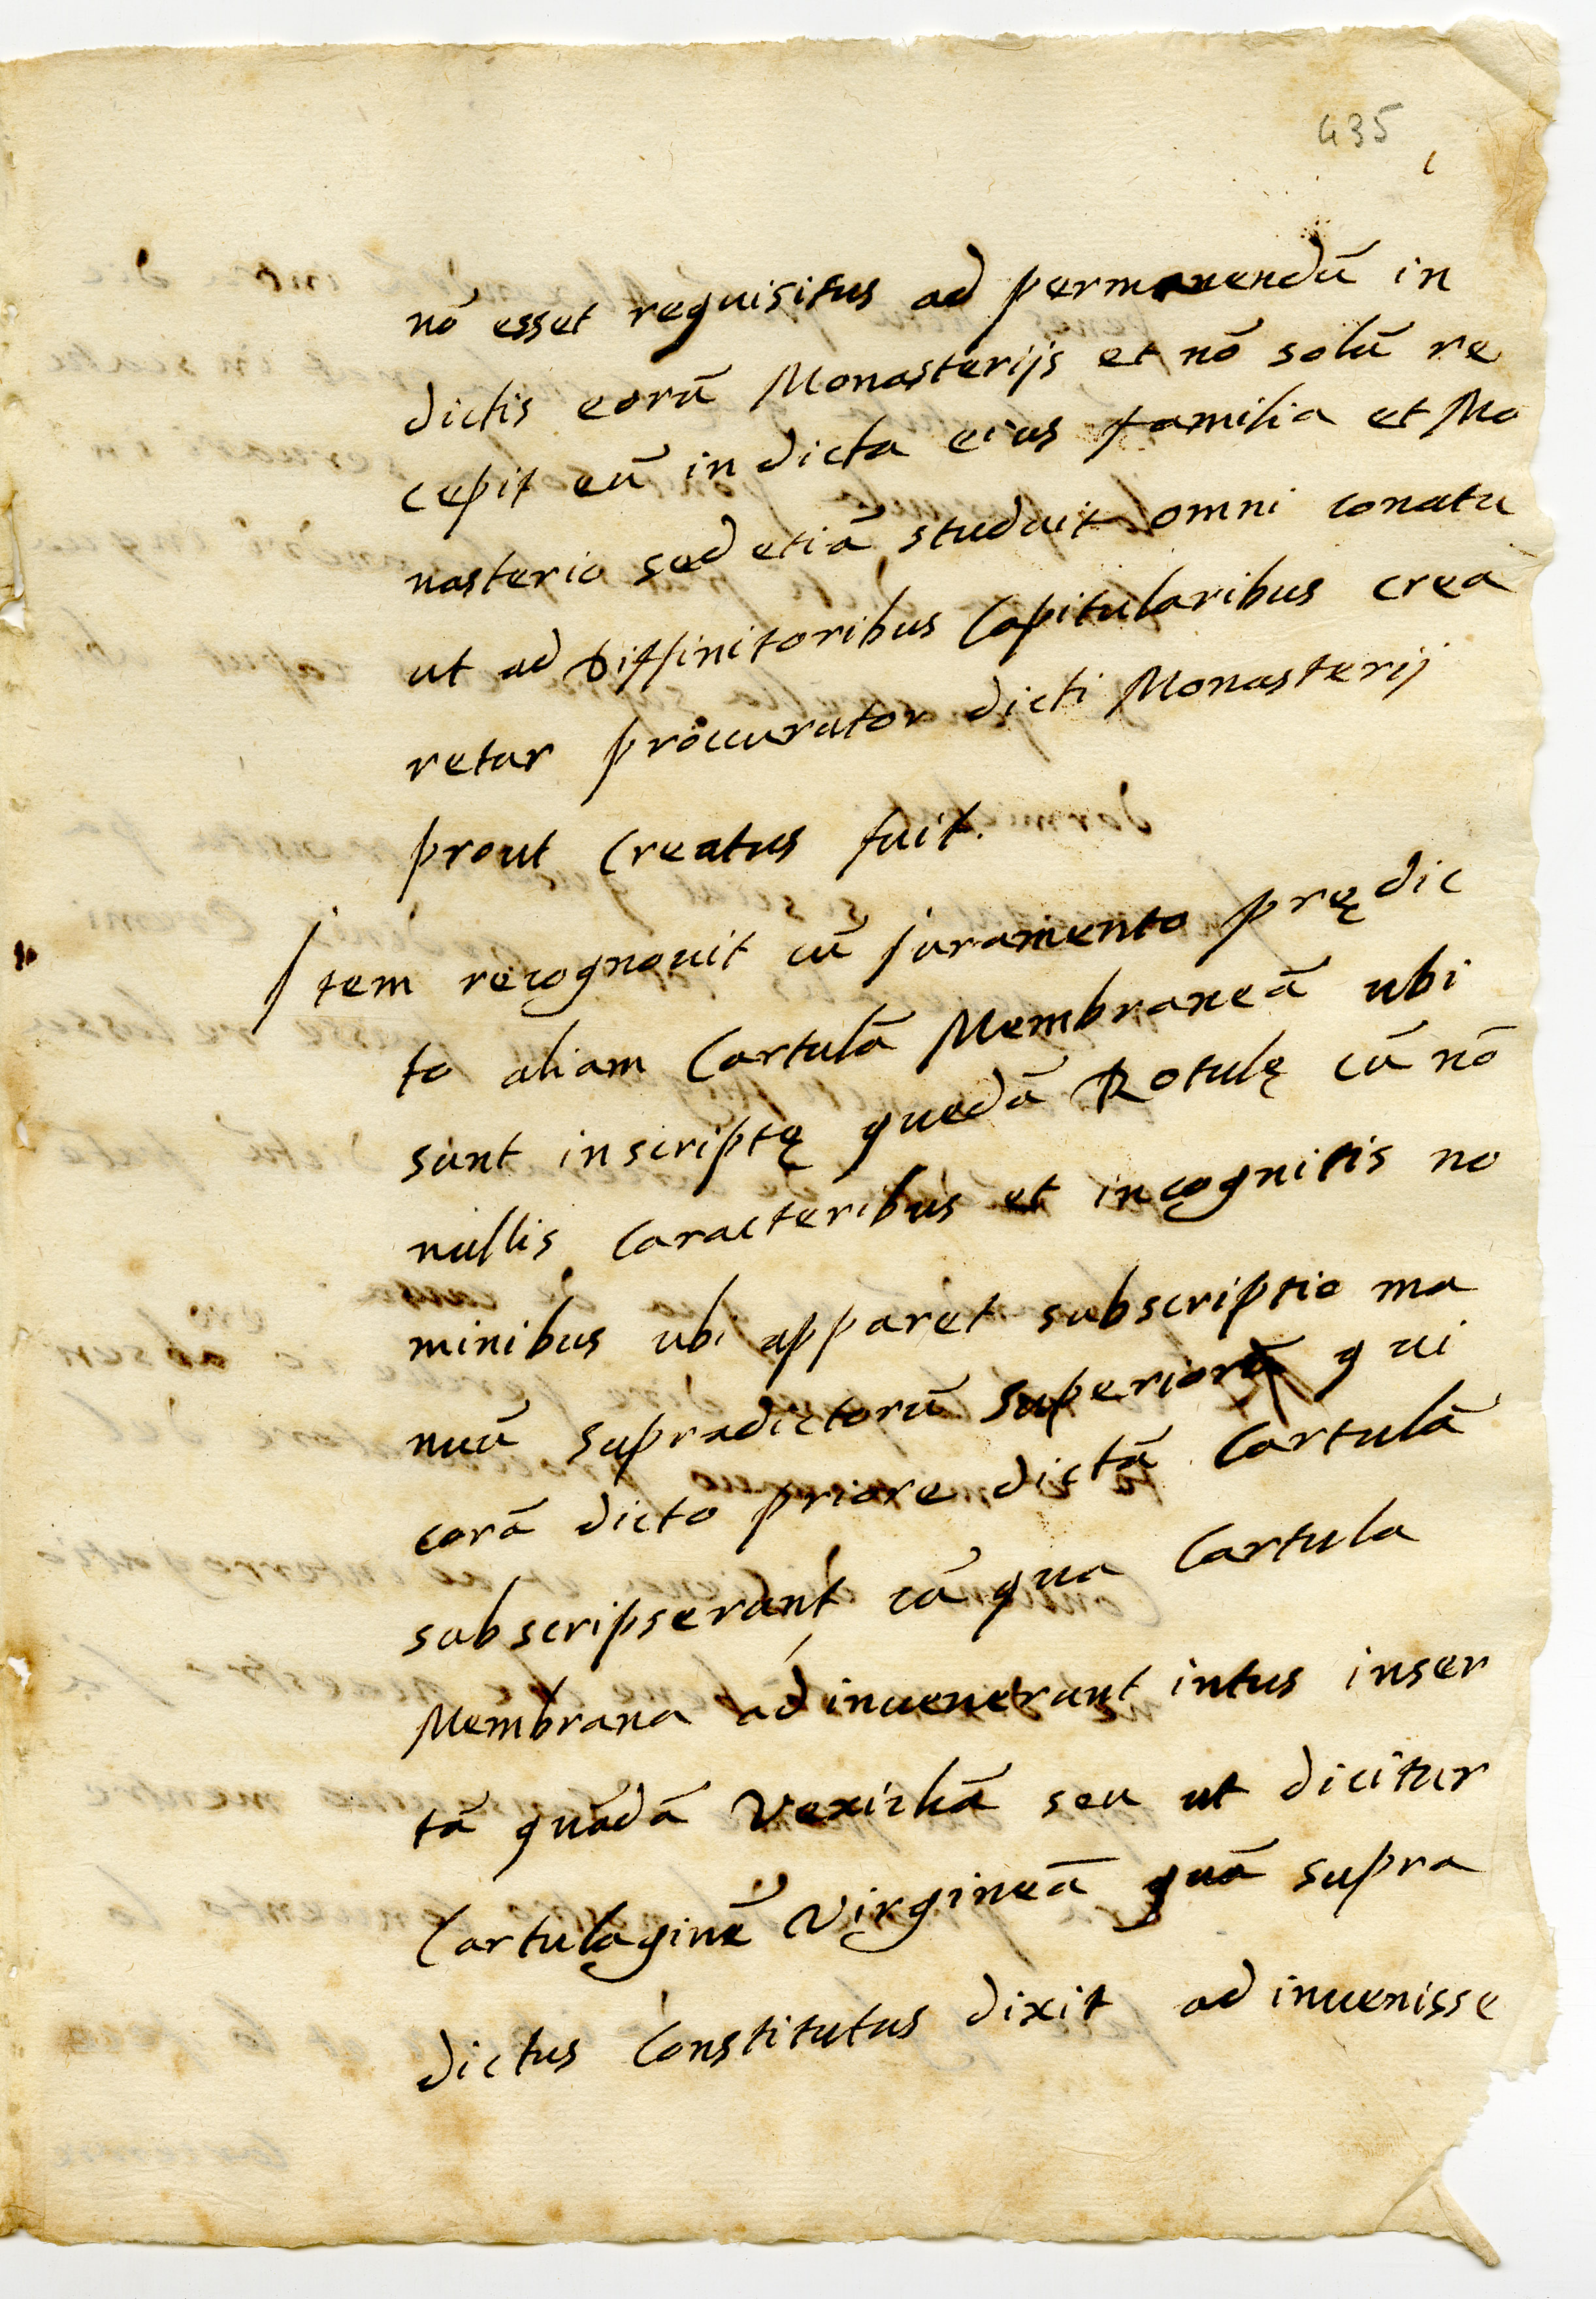 435
nō esset requisitus ad permanendū in
dictis eorū Monasterijs et nō solū re
cepit eū in dicta eius familia et Mo
nasterio sed etiā studuit omni conatu
ut ad Diffinitoribus Capitularibus crea
retur proccurator dicti Monasterij
prout Creatus fuit.
Item recognouit cū juramento prędic
to aliam Cartulā Membraneā ubi
sunt inscriptę quedā Rotulę cū nō
nullis Caracteribus et incognitis no
minibus ubi apparet subscriptio ma
nuū supradictorū superiorū qui
corā dicto priore dictā Cartulā
subscripserant cū qua Cartula
Membrana ad inuenerant intus inser
tā quādā Vexichā seu ut dicitur
Cartulaginē Virgineā quā supra
dictus Constitutus dixit ad inuenisse